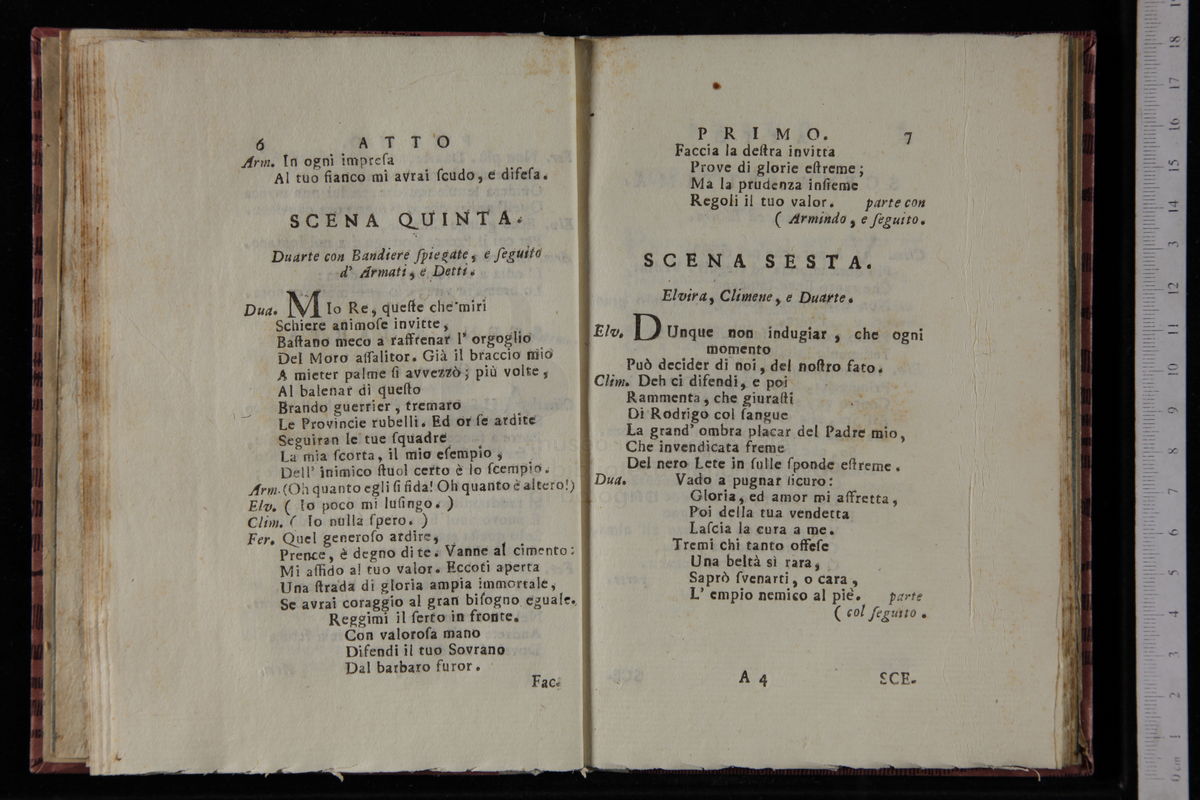 6 ATTO
Arm. In ogni impreſa
Al tuo fianco mi avrai ſcudo, e difeſa.
SCENA QUINTA.
Duarte con Bandiere ſpiegate, e ſeguito
d' Armati, e Detti.
Dua. MIo Re, queſte che miri
Schiere animoſe invitte,
Baſtano meco a raffrenar l' orgoglio
Del Moro aſſalitor. Già il braccio mio
A mieter palme ſi avvezzò; più volte,
Al balenar di queſto
Brando guerrier, tremaro
Le Provincie rubelli. Ed or ſe ardite
Seguiran le tue ſquadre
La mia ſcorta, il mio eſempio,
Dell' inimico ſtuol certo è lo ſcempio.
Arm. (Oh quanto egli ſi fida! Oh quanto è altero!)
Elv. ( Io poco mi luſingo. )
Clim. ( Io nulla ſpero. )
Fer. Quel generoſo ardire,
Prence, è degno di te. Vanne al cimento:
Mi affido al tuo valor. Eccoti aperta
Una ſtrada di gloria ampia immortale,
Se avrai coraggio al gran biſogno eguale.
Reggimi il ſerto in fronte.
Con valoroſa mano
Difendi il tuo Sovrano
Dal barbaro furor.
Fac.
PRIMO. 7
Faccia la deſtra invitta
Prove di glorie eſtreme;
Ma la prudenza inſieme
Regoli il tuo valor. parte con
( Armindo, e ſeguito.
SCENA SESTA.
Elvira, Climene, e Duarte.
Elv. DUnque non indugiar, che ogni
momento
Può decider di noi, del noſtro fato.
Clim. Deh ci difendi, e poi
Rammenta, che giuraſti
Di Rodrigo col ſangue
La grand' ombra placar del Padre mio,
Che invendicata freme
Del nero Lete in ſulle ſponde eſtreme.
Dua. Vado a pugnar ſicuro:
Gloria, ed amor mi affretta,
Poi della tua vendetta
Laſcia la cura a me.
Tremi chi tanto offeſe
Una beltà sì rara,
Saprò ſvenarti, o cara,
L' empio nemico al piè. parte
( col ſeguito.
A 4 SCE.